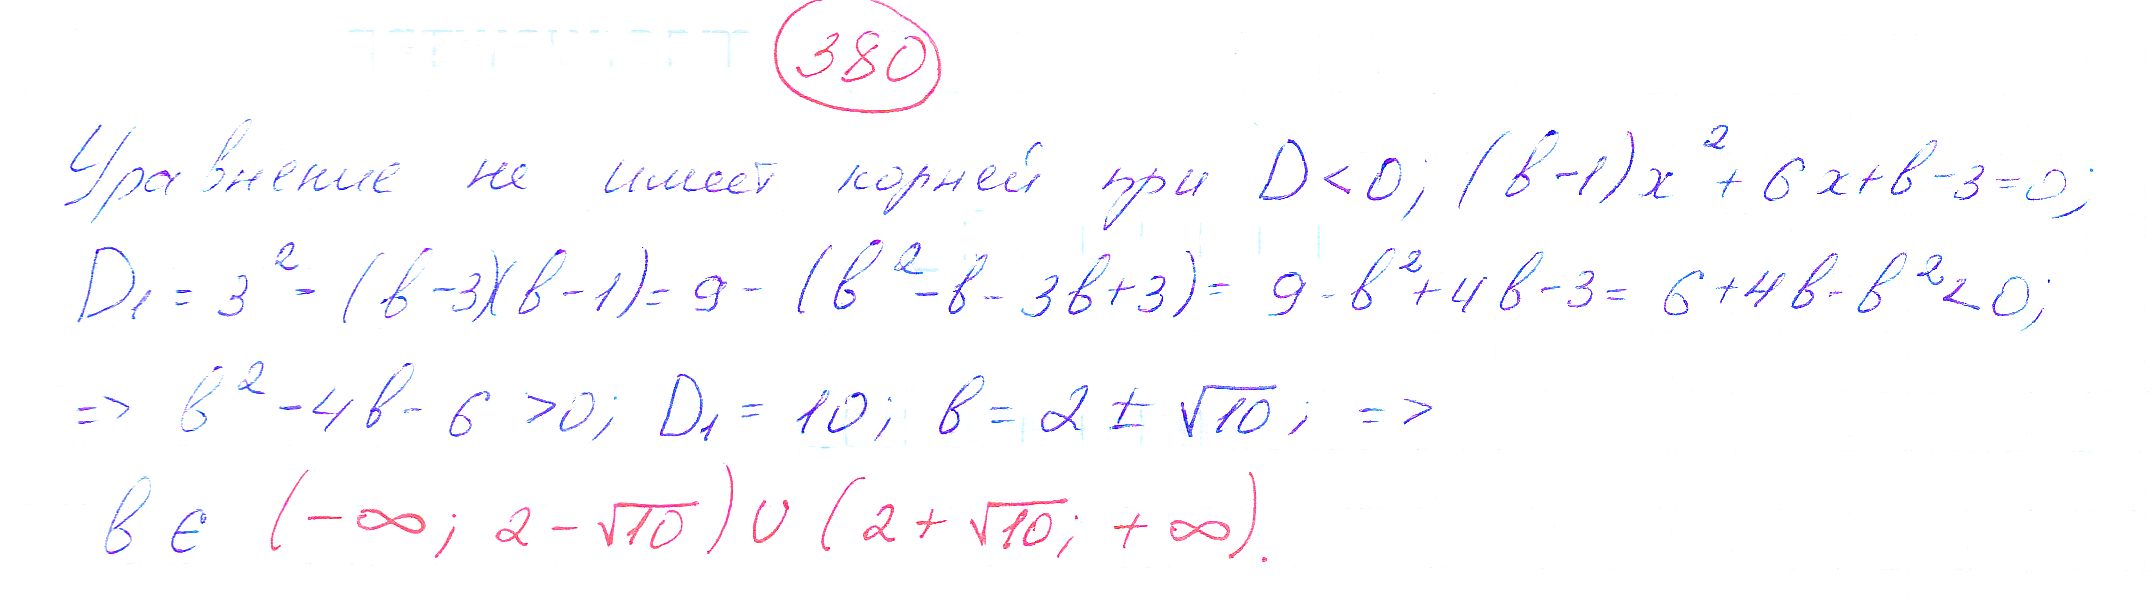 380
Уравнение не имеет корней при D<0; (в-1)x²+6x+в-3=0;
D₁=3²-(в-3)(в-1)=9-(в²-в-3в+3)=9-в²+4в-3=6+4в-в²<0;
=> в²-4в-6>0; D₁=10; в=2±√10; =>
в є (-∞; 2-√10) ∪ (2+√10; +∞).